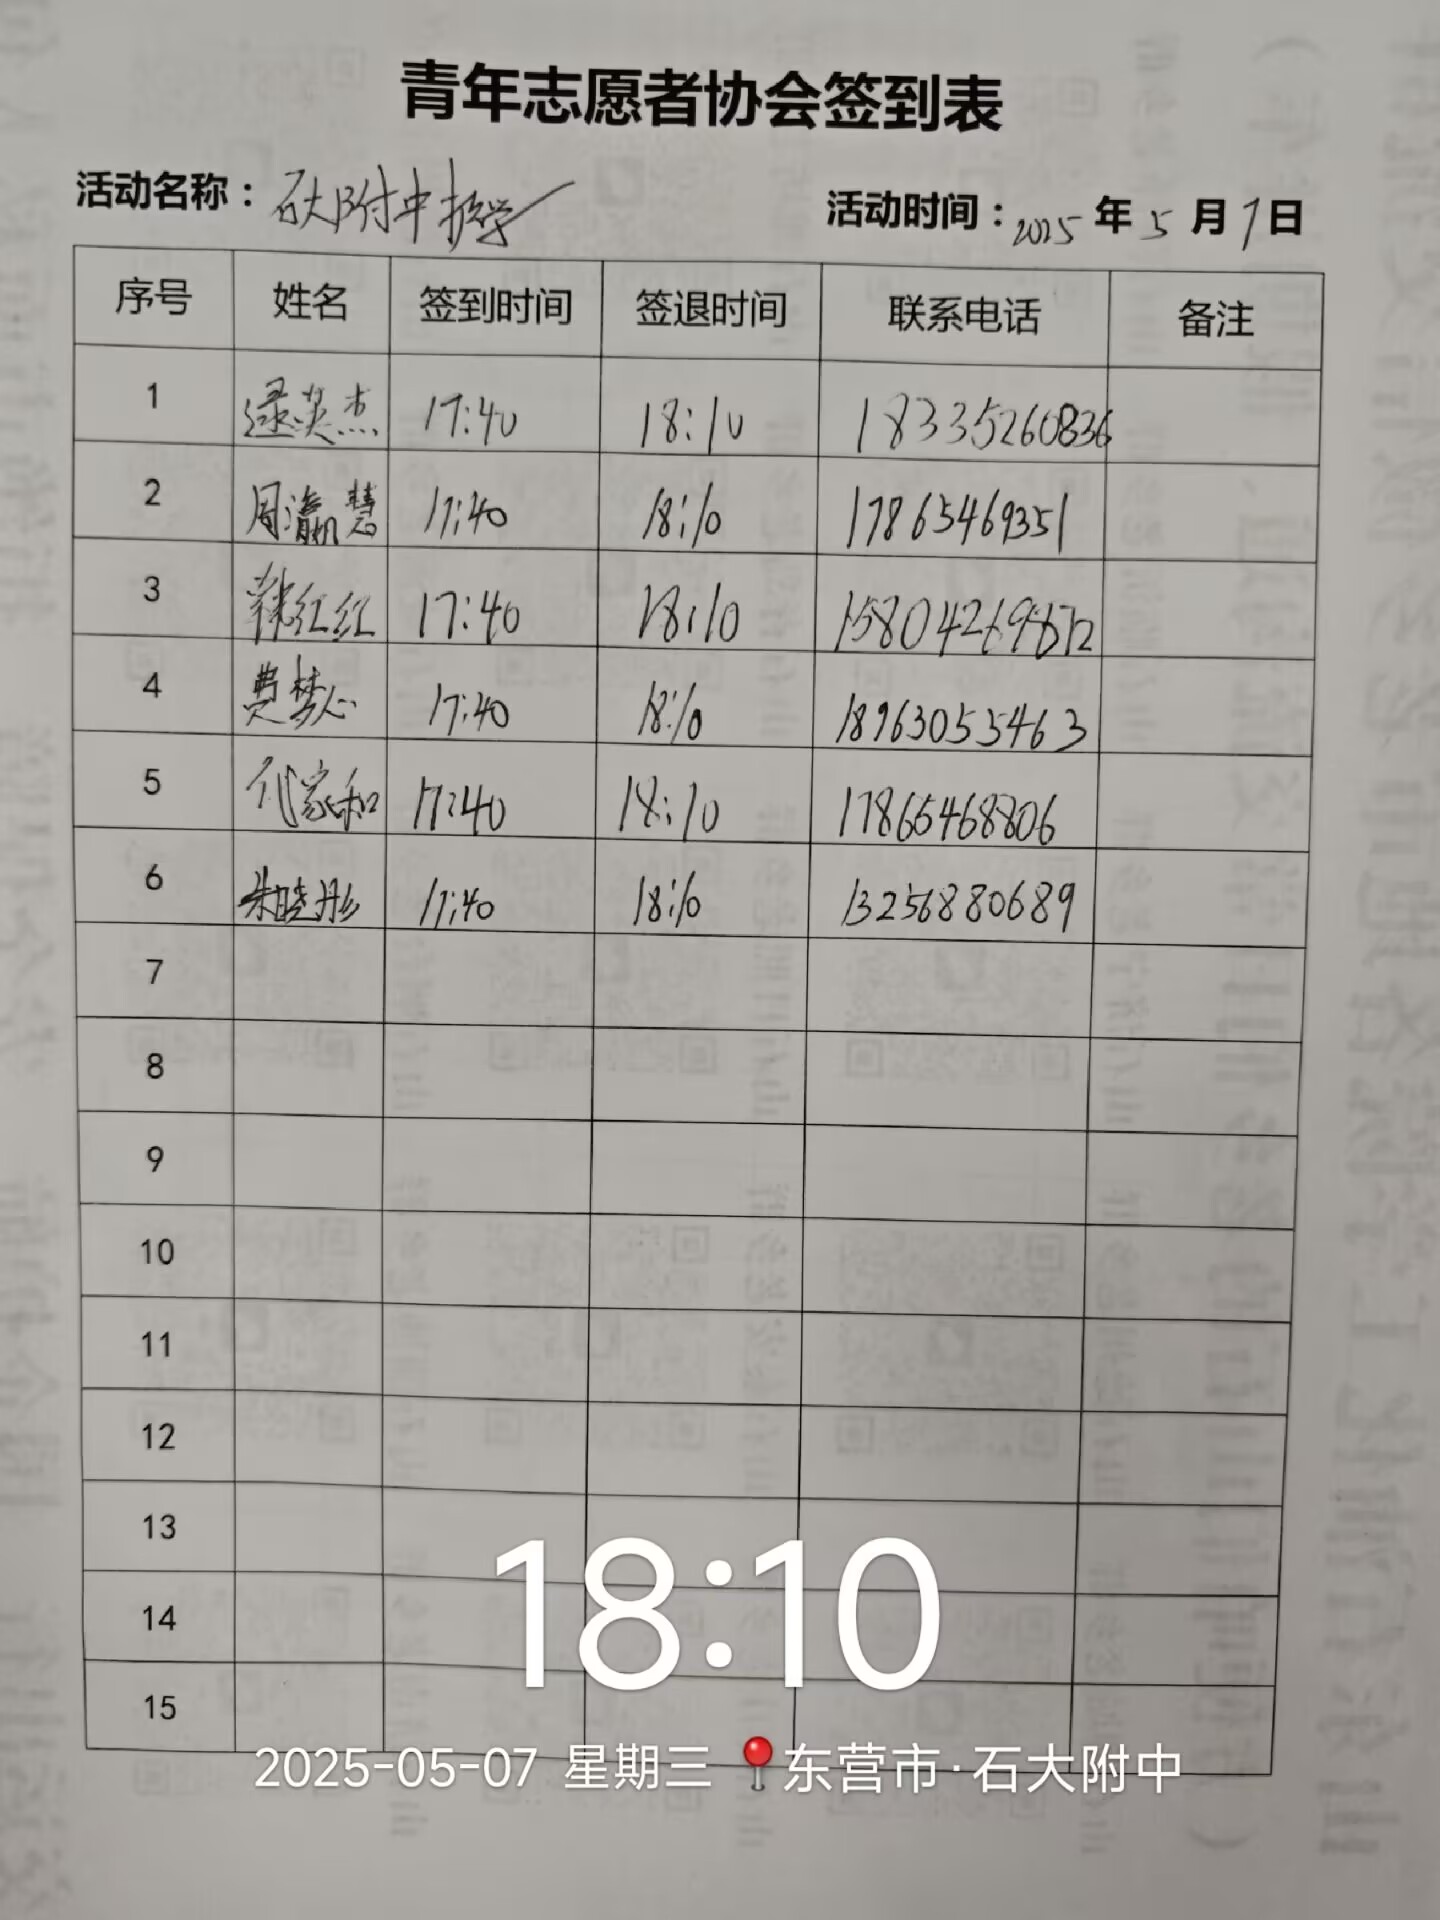 青年志愿者协会签到表
活动名称：石大附中护学 活动时间：2025 年 5 月 7 日
序号 姓名 签到时间 签退时间 联系电话 备注
1 逯英杰 17:40 18:10 18335260836
2 周瀛慧 17:40 18:10 17865469351
3 韩红红 17:40 18:10
4 费梦心 17:40 18:10 18963055463
5 代家和 17:40 18:10 17865468806
6 朱晓彤 17:40 18:10 13256880689
7
8
9
10
11
12
13
14
15
18:10
2025-05-07 星期三 东营市·石大附中